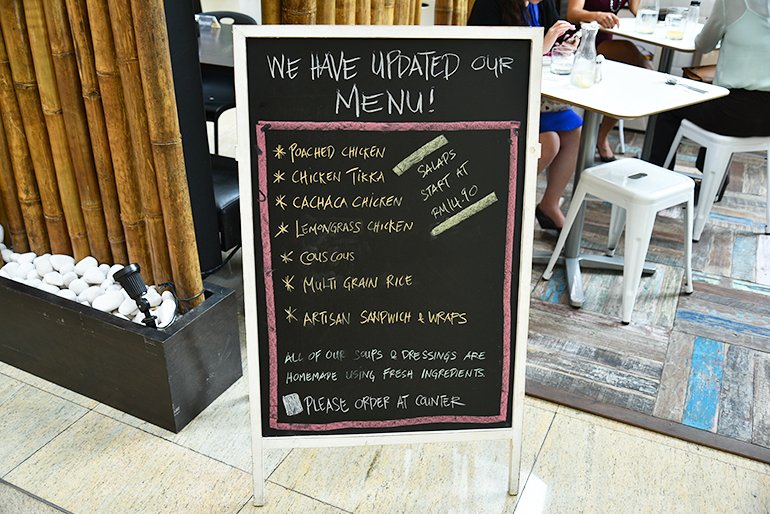 WE HAVE UPDATED OUR
MENU!
* POACHED CHICKEN
* CHICKEN TIKKA
* CACHACA CHICKEN
* LEMONGRASS CHICKEN
* COUSCOUS
* MULTI GRAIN RICE
* ARTISAN SANDWICH & WRAPS
SALADS
START AT
RM14.90
ALL OF OUR SOUPS & DRESSINGS ARE
HOMEMADE USING FRESH INGREDIENTS.
PLEASE ORDER AT COUNTER